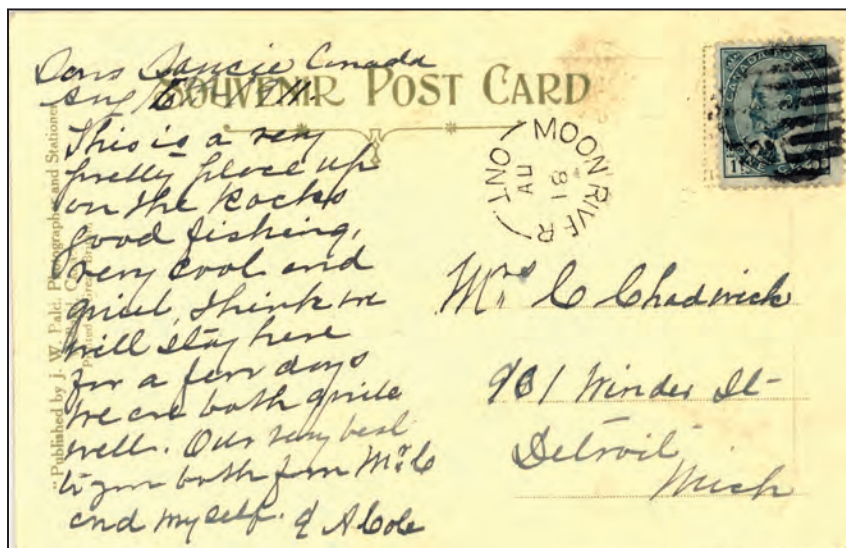 Sans Soucie Canada
Aug 1911.
SOUVENIR POST CARD
This is a very
pretty place up
on the Rocks
good fishing,
very cool and
quiet, think we
will stay here
for a few days
we are both quite
well. Our very best
to you both from Mr. C
and myself. A Cole
"Published by J. W. Bald, Photographer and Stationer
Printed in Great Britain
MOON RIVER
ONT
AU
18
CANADA
1
Mrs C Chadwick
961 Winder St
Detroit
Mich